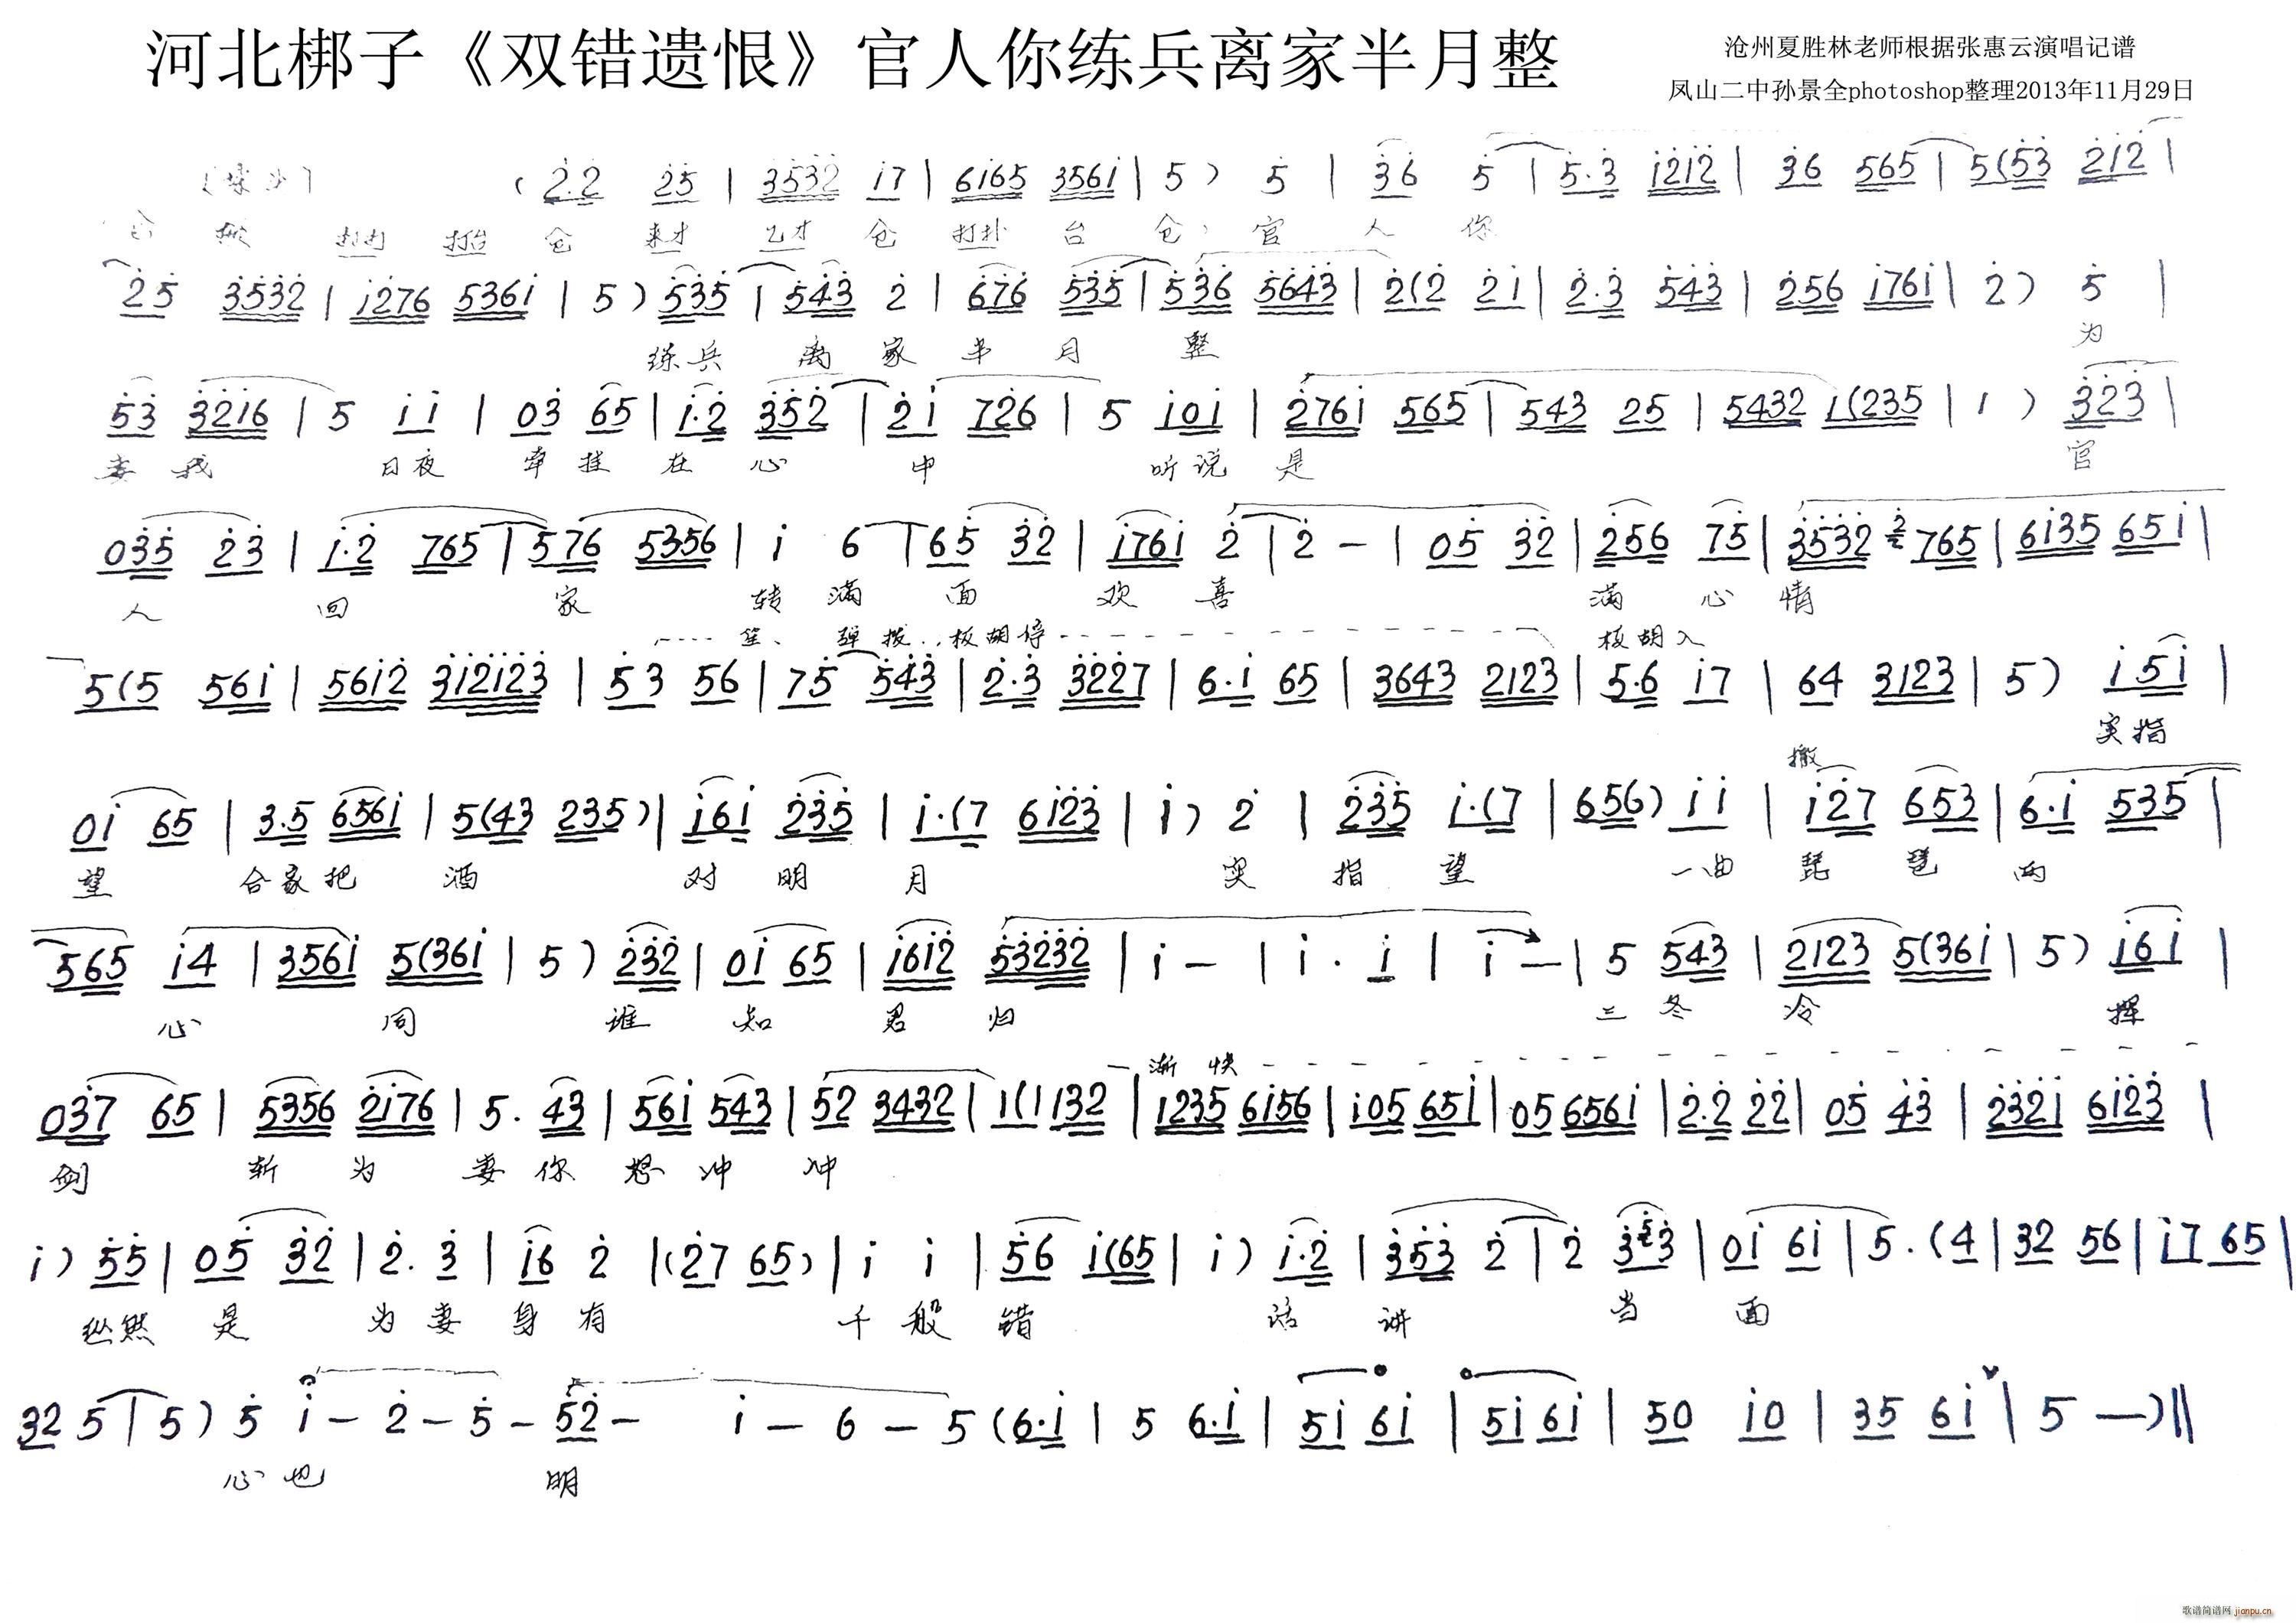 河北梆子《双错遗恨》官人你练兵离家半月整
沧州夏胜林老师根据张惠云演唱记谱
凤山二中孙景全photoshop整理2013年11月29日
(2.2 25 | 3532 i7 | 6i65 356i | 5) 5 | 36 5 | 5.3 i2i2 | 36 565 | 5(53 2i2 |
仓 来才 乙才 仓 打扑 台 仓 官 人 你
25 3532 | i276 536i | 5) 535 | 543 2 | 676 535 | 536 5643 | 2(2 2i | 2.3 543 | 256 i76i | 2) 5 |
练兵 离 家 半 月 整 为
53 32i6 | 5 ii | 03 65 | i.2 352 | 2i 726 | 5 i0i | 276i 565 | 543 25 | 5432 1(235 | 1) 323 |
妻 我 日夜 牵 挂 在 心 中 听说 是 官
035 23 | i.2 765 | 576 5356 | i 6 | 65 32 | i76i 2 | 2 - | 05 32 | 256 75 | 3532 2 765 | 6i35 65i |
人 回 家 转 满 面 欢 喜 满 心 情
笙、弹拨..板胡停 板胡入
5(5 56i | 56i2 3i2i23 | 53 56 | 75 543 | 2.3 3227 | 6.i 65 | 3643 2123 | 5.6 i7 | 64 3123 | 5) i5i |
实指
撤
0i 65 | 3.5 656i | 5(43 235) | i6i 235 | i.(7 6i23 | i) 2 | 235 i.(7 | 656) ii | i27 653 | 6.i 535 |
望 合家把 酒 对 明 月 实 指 望 一曲 琵 琶 两
565 i4 | 356i 5(36i | 5) 232 | 0i 65 | i6i2 53232 | i - | i. i | i - | 5 543 | 2123 5(36i | 5) i6i |
心 同 谁 知 君 归 三 冬 冷 挥
渐 快
037 65 | 5356 2i76 | 5. 43 | 56i 543 | 52 3432 | 1(1 132 | 1235 6i56 | i05 65i | 05 656i | 2.2 22 | 05 43 | 232i 6i23 |
剑 斩 为 妻 你 怒 冲 冲
i) 55 | 05 32 | 2. 3 | i6 2 | (27 65) | i i | 56 i(65 | i) i.2 | 353 2 | 2 353 | 0i 6i | 5. (4 | 32 56 | i7 65 |
纵然 是 为 妻 身 有 千 般 错 话 讲 当 面
32 5 | 5) 5 i - 2 - 5 - 52 - i - 6 - 5 (6.i | 5 6.i | 5i 6i | 5i 6i | 50 i0 | 35 6i | 5 - ) ||
心 也 明
歌谱简谱网 jianpu.cn